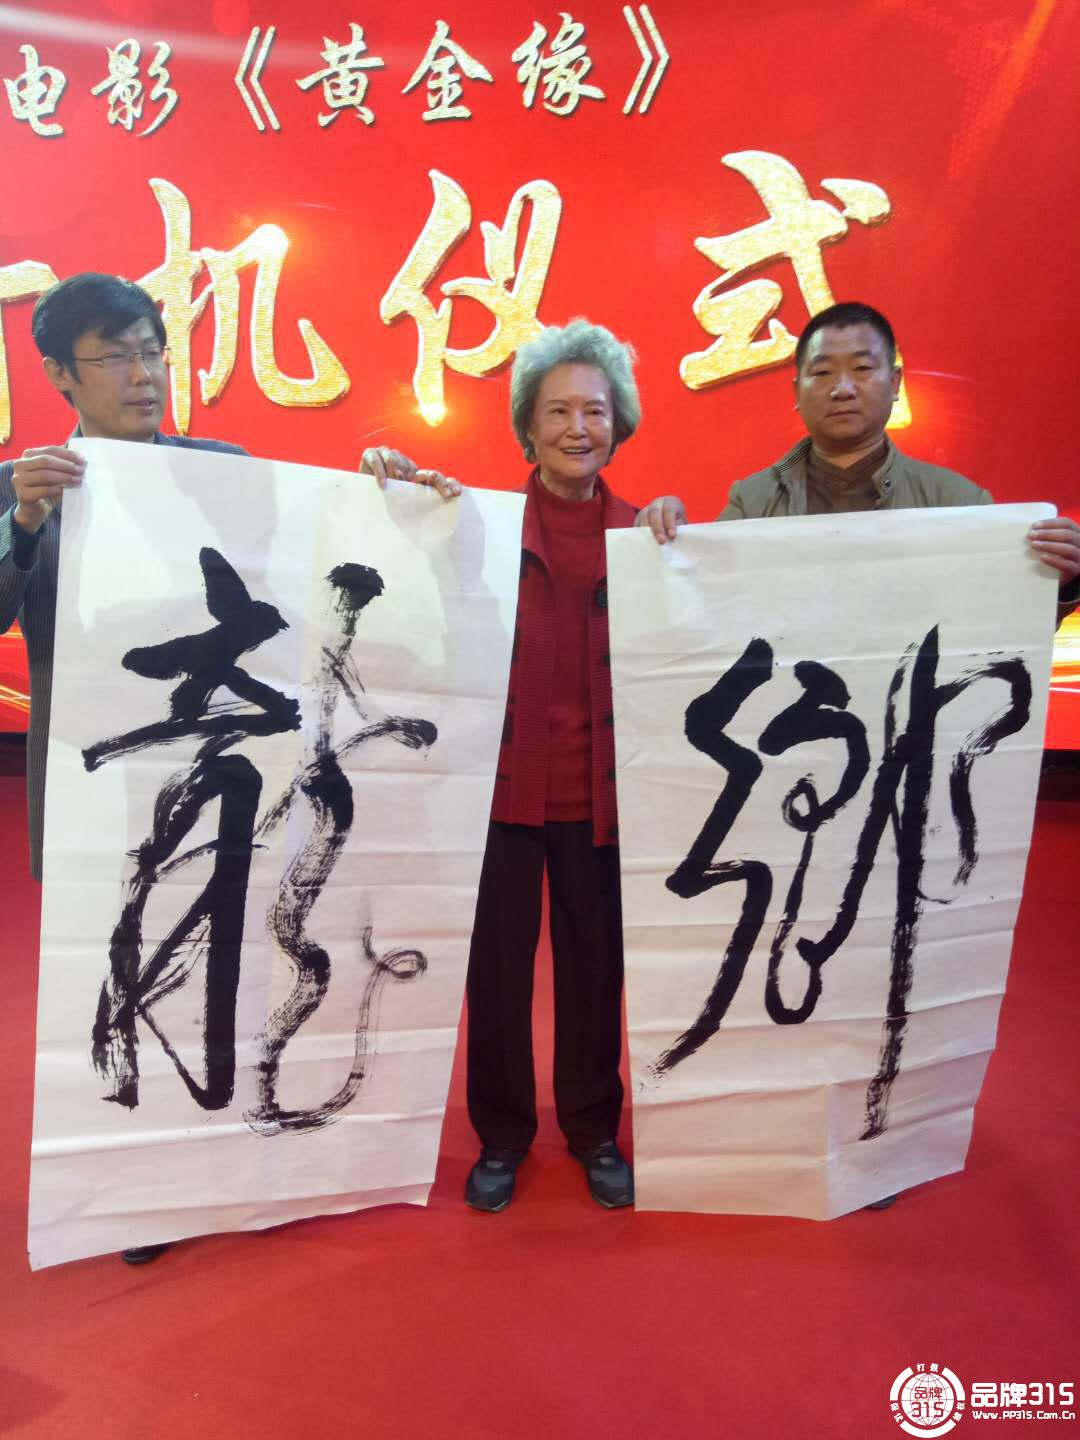 电影《黄金缘》
机仪式
龍
鄉
打假
保优
维权
品牌
315
品牌315
Www.PP315.Com.Cn